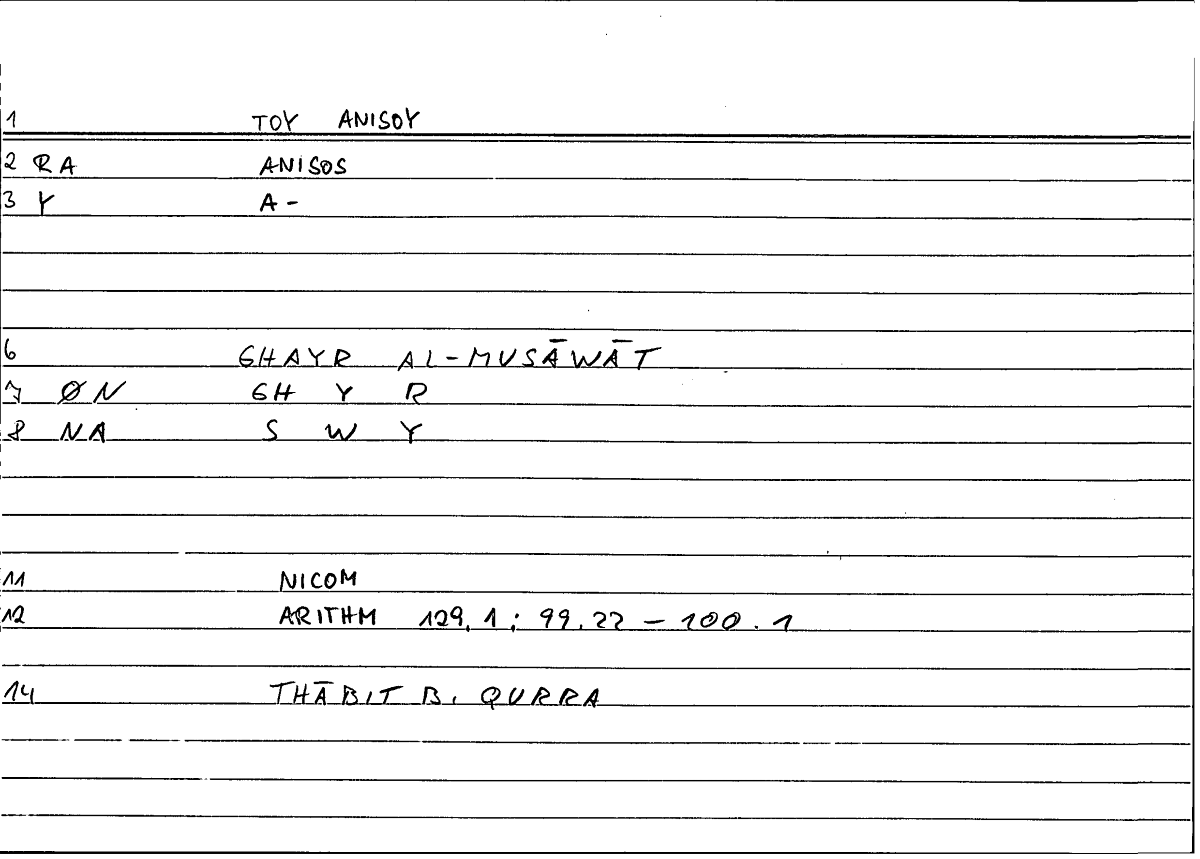 1 TOY ANISOY
2 RA ANISOS
3 Y A-
6 GHAYR AL-MUSĀWĀT
7 ØN GH Y R
8 NA S W Y
11 NICOM
12 ARITHM 129,1; 99.22 – 100.1
14 THĀBIT B. QURRA